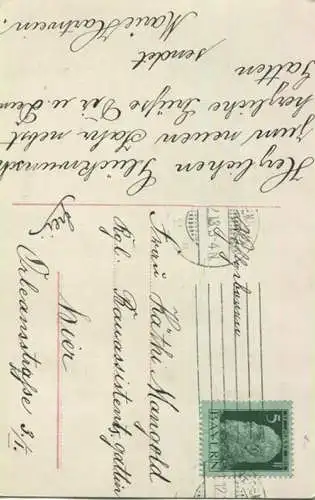 Herzlichen Glückwunsch
zum neuen Jahr nebst
herzliche Grüße Dir u. Dein
Gatten
sendet
Marie Hartwein.
Frau Käthi Mangold
Kgl. Bauassistents,gattin
Hier
Orleansstraße 3/I.
5
BAYERN